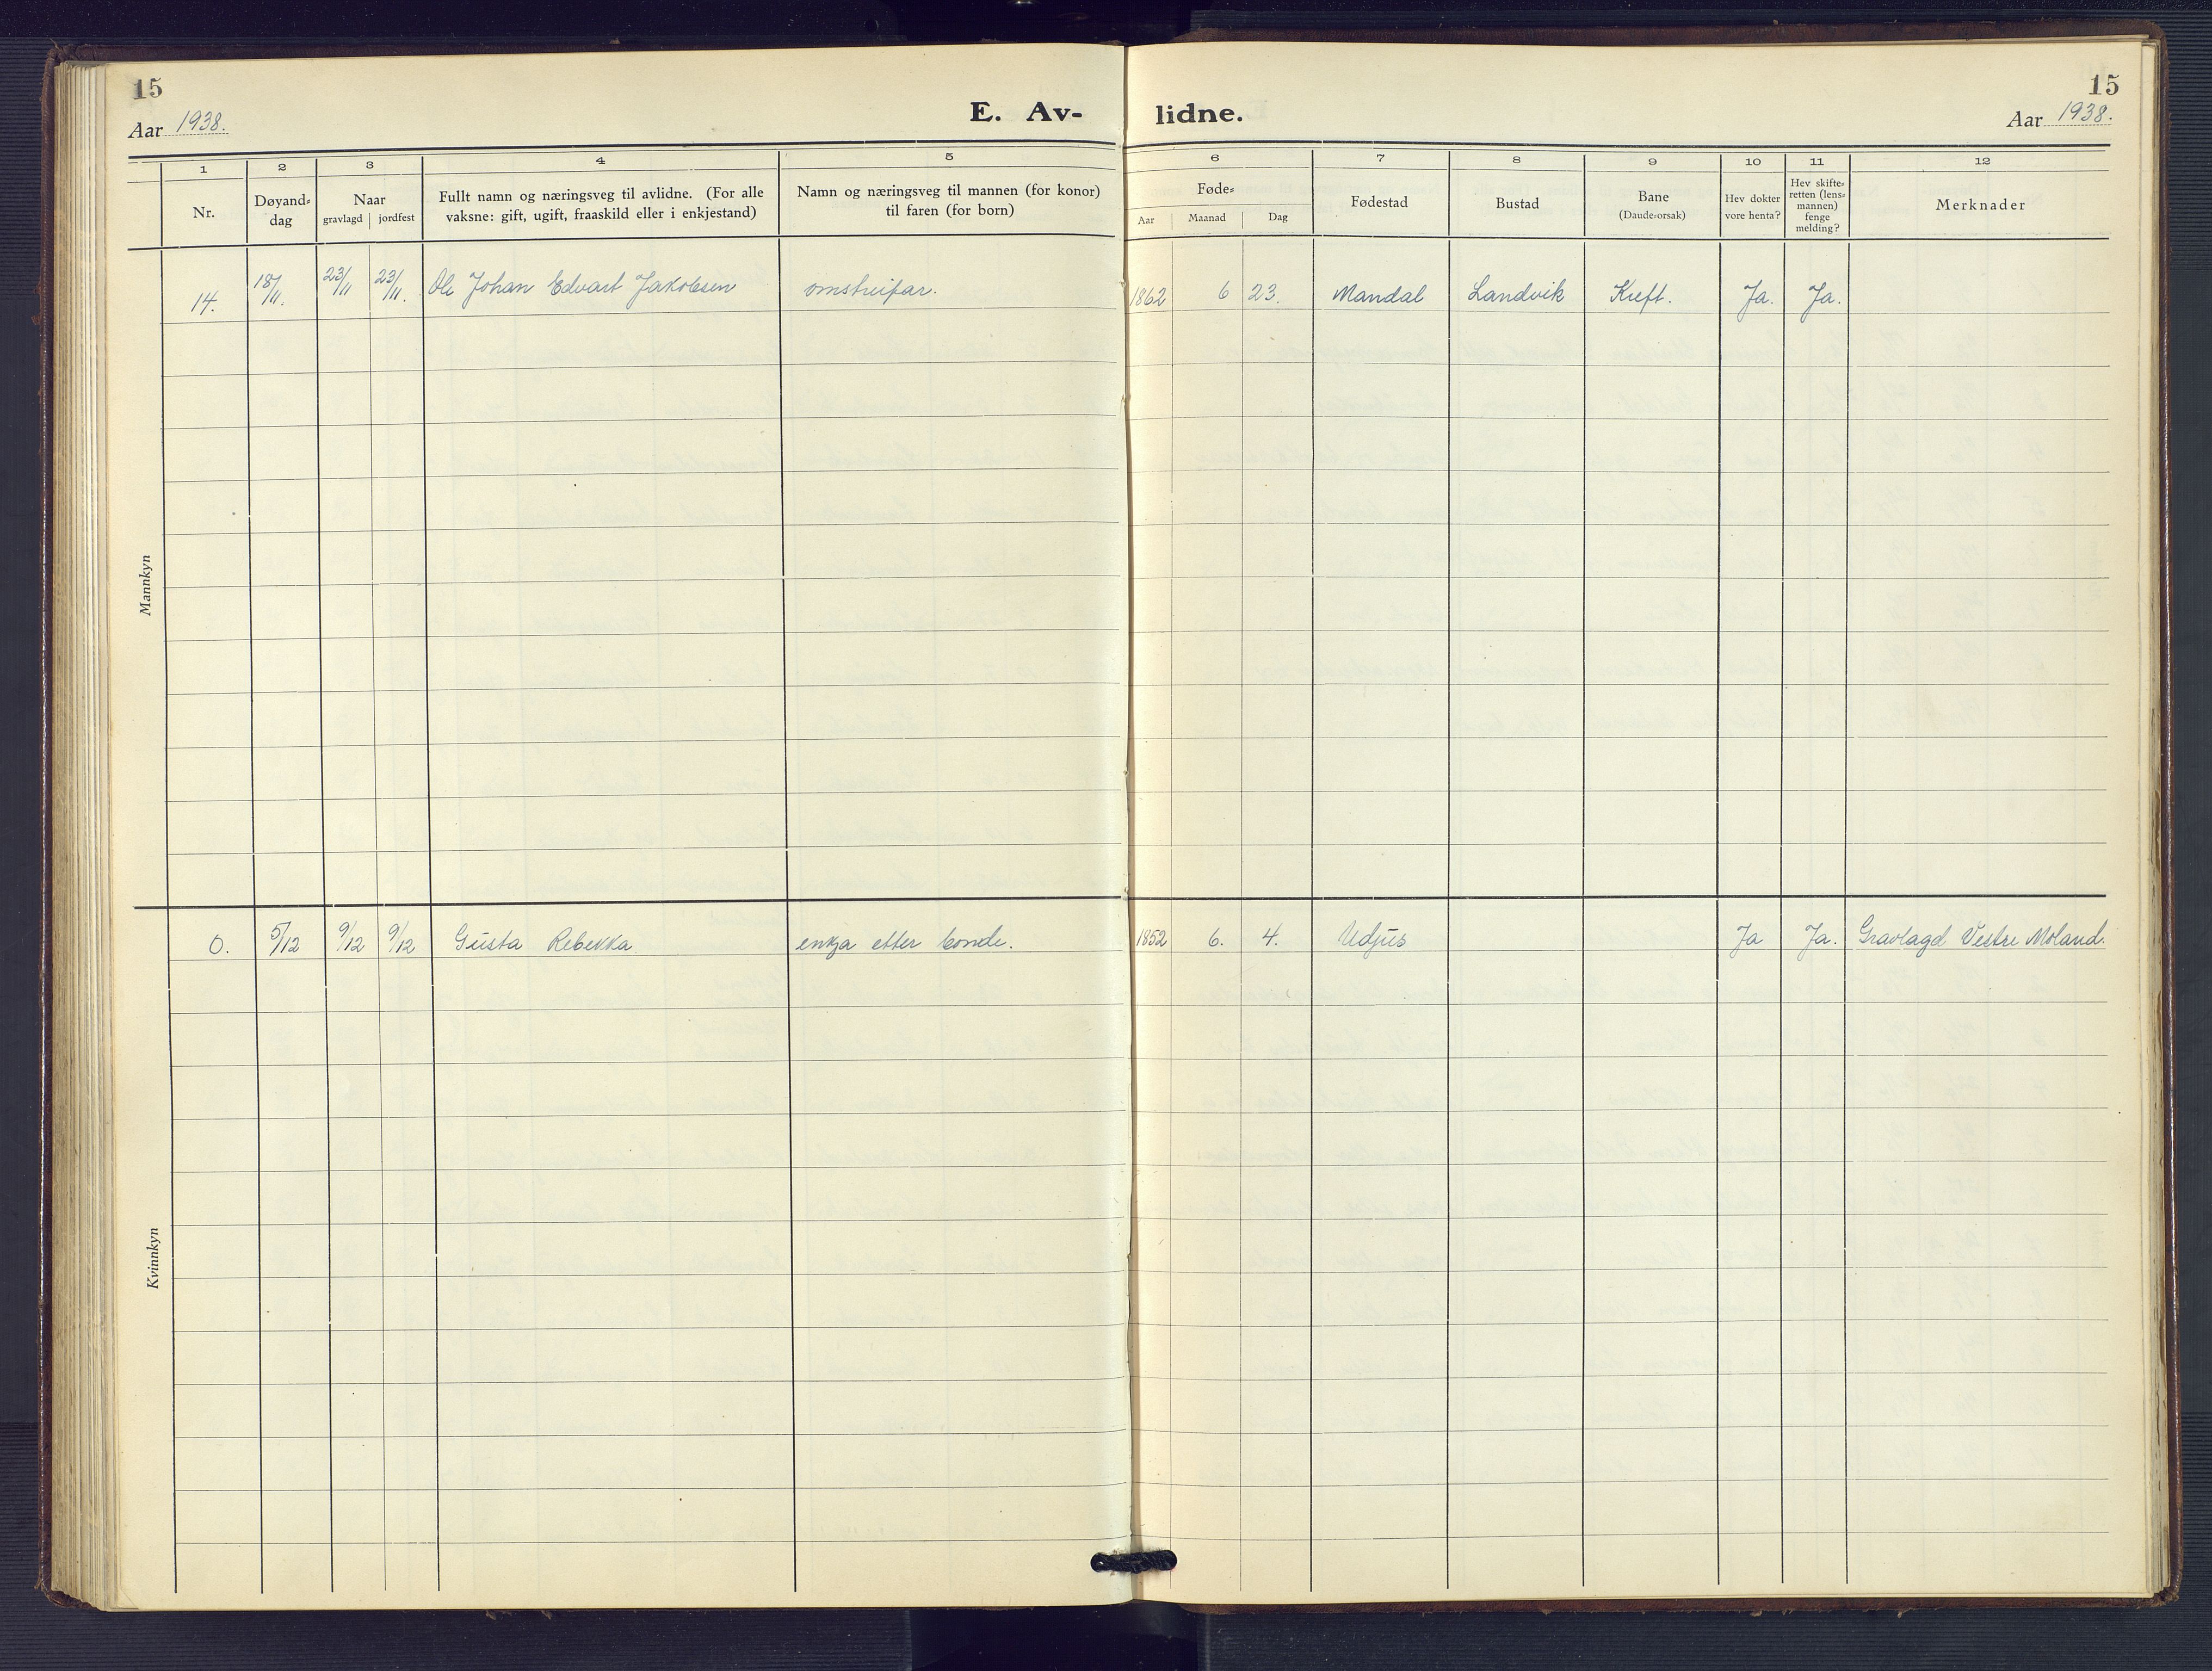 15
15
Aar 1938.
E. Av-
lidne.
Aar 1938.
1 2 3 4 5 6 7 8 9 10 11 12
Nr.
Døyand=
dag
Naar
gravlagd jordfest
Fullt namn og næringsveg til avlidne. (For alle
vaksne: gift, ugift, fraaskild eller i enkjestand)
Namn og næringsveg til mannen (for konor)
til faren (for born)
Føde=
Aar Maanad Dag
Fødestad
Bustad
Bane
(Daude=orsak)
Hev dokter
vore henta?
Hev skifte=
retten (lens=
mannen)
fenge
melding?
Merknader
Mannkyn
14. 18/11. 23/11 23/11. Ole Johan Edvart Jakobsen omstreifar. 1862 6 23. Mandal Landvik Kreft. Ja. Ja.
Kvinnkyn
0. 5/12 9/12 9/12 Gusta Rebekka enkja etter bonde. 1852 6. 4. Udjus Ja Ja. Gravlagd Vestre Moland.